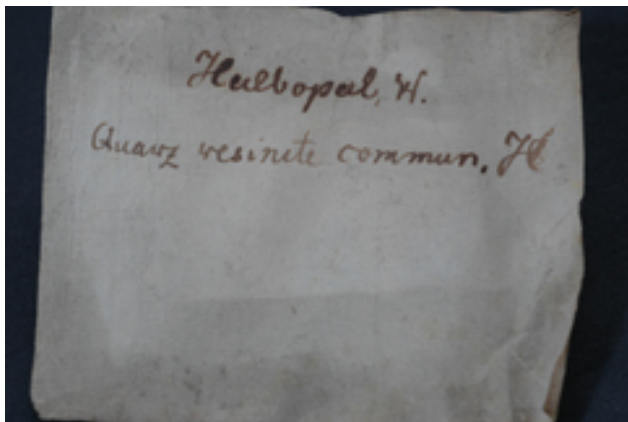 Halbopal, W.
Quarz resinite commun, H